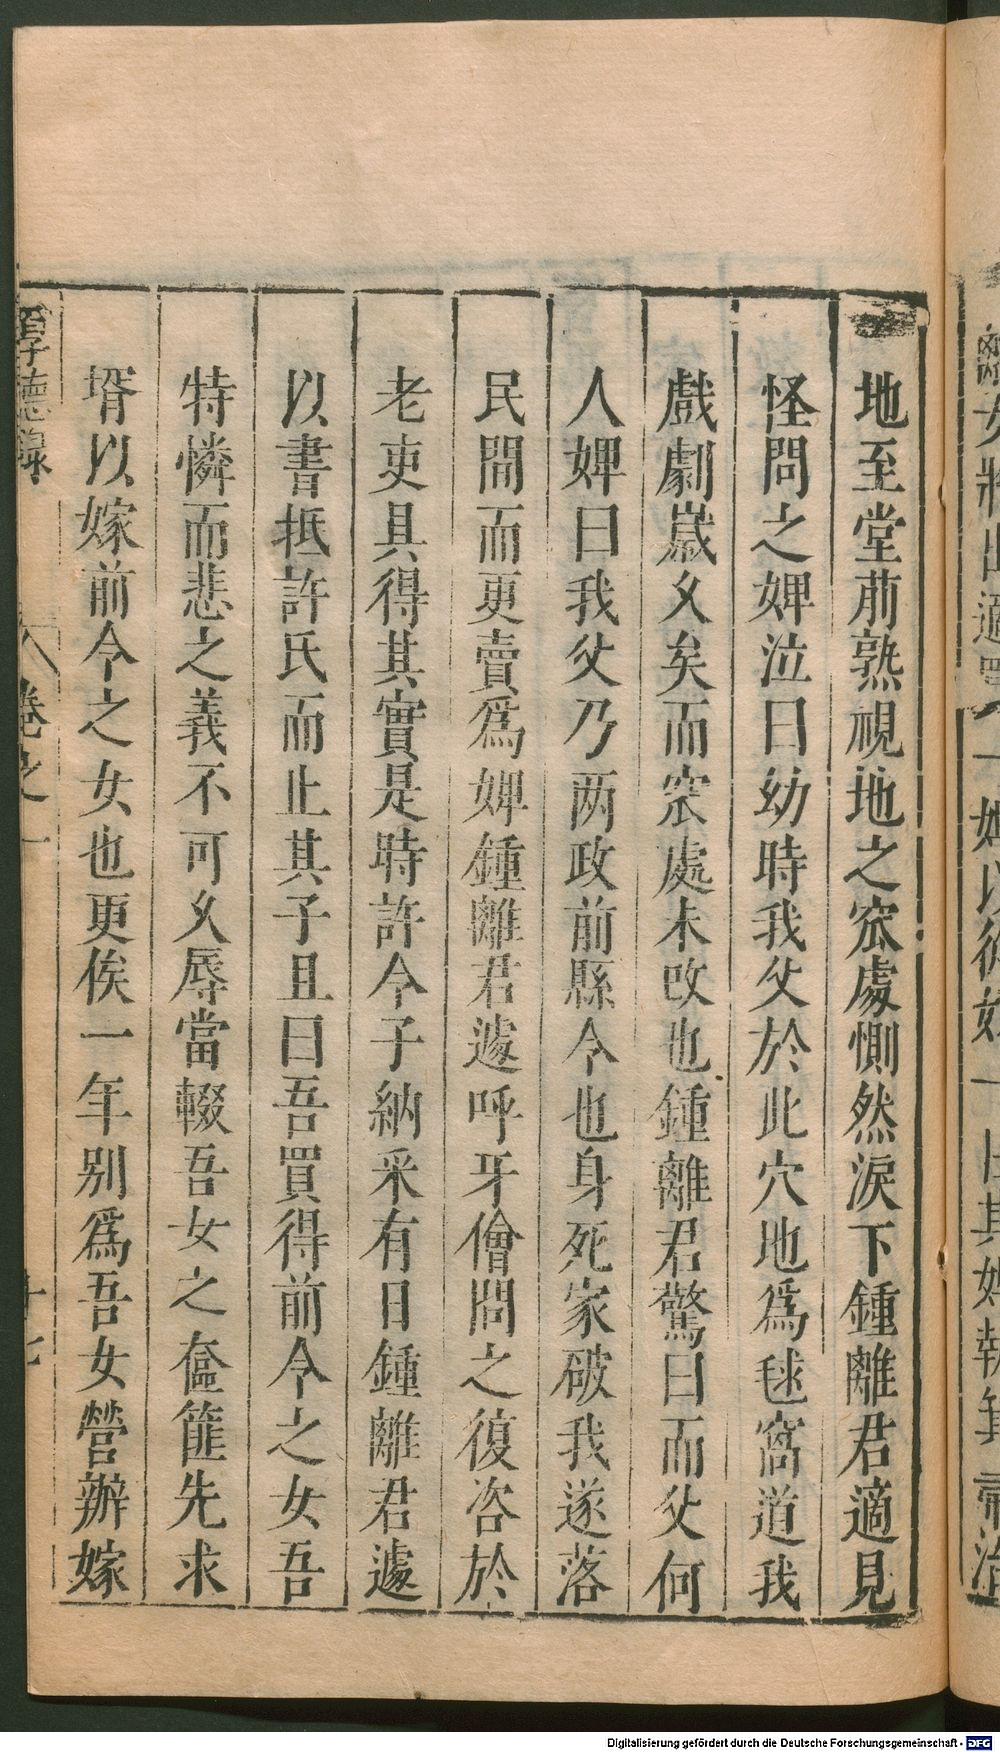 地至堂前熟視地之窊處惻然淚下鍾離君適見
怪問之婢泣曰幼時我父於此穴地爲毬窩道我
戲劇嵗久矣而窊處未改也鍾離君驚曰而父何
人婢曰我父乃两政前縣令也身死家破我遂落
民間而更賣爲婢鍾離君遽呼牙儈問之復咨於
老吏具得其實是時許令子納采有日鍾離君遽
以書抵許氏而止其子且曰吾買得前令之女吾
特憐而悲之義不可久辱當輟吾女之奩篚先求
壻以嫁前令之女也更俟一年别爲吾女營辦嫁
厚德録 卷之一 十七
Digitalisierung gefördert durch die Deutsche Forschungsgemeinschaft - DFG